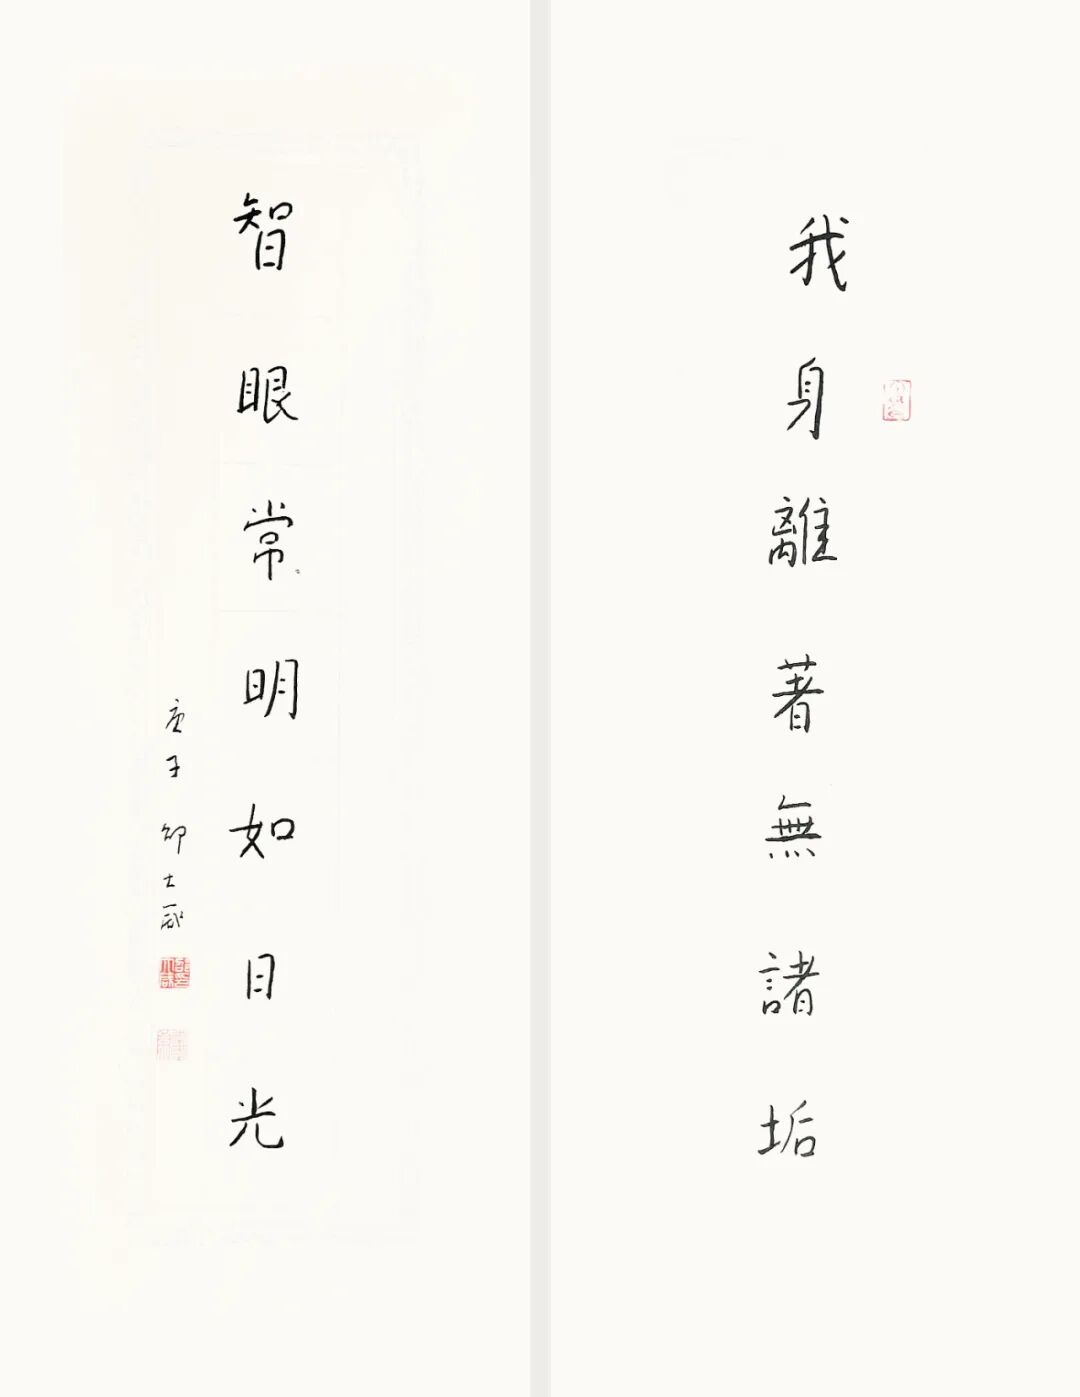 我身離著無諸垢
智眼常明如日光
庚子 邹士